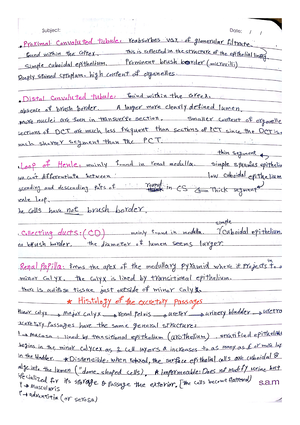 Subject: Date: / /
• Proximal Convoluted tubule: reabsorbes 65% of glomerular filtrate.
found within the Cortex. This is reflected in the structure of the epithelial lining.
Simple cuboidal epithelium. Prominent brush border (microvilli)
Deeply stained cytoplasm, high content of organelles
• Distal Convoluted tubule: found within the Cortex.
absence of brush border. A larger more clearly defined lumen.
more nuclei are seen in transverse section. smaller content of organelle
sections of DCT are much less frequent than sections of PCT since the DCT is
much shorter segment than the PCT.
thin segment
• Loop of Henle: mainly found in renal medulla. simple squamous epithelium
we can't differentiate between: low cuboidal epithelium
scending and descending parts of in CS Thick segment
enle loop.
he cells have not brush border.
simple
• Collecting ducts: (CD) mainly found in medulla. cuboidal epithelium
no brush border. the diameter of lumen seems larger
Renal papilla: forms the apex of the medullary pyramid where it projects into
minor calyx. the calyx is lined by transitional epithelium.
there is adipose tissue just outside of minor calyx.
* Histology of the excretory passages
Minor calyx → Major calyx → renal pelvis → ureter → urinary bladder → urethra
excretory passages have the same general structure:
mucosa: lined by transitional epithelium (urothelium), stratified epithelium
begins in the minor calyces as 2 cell layers & increases to as many as 6 or more layers
in the bladder. * Distensible: when relaxed, the surface epithelial cells are cuboidal &
bulge into the lumen ("dome-shaped cells), * impermeable: Does not modify urine, but
specialized for its storage & passage the exterior, (the cells become flattened) s.a.m
↑ muscularis
↑ adventitia (or serosa)